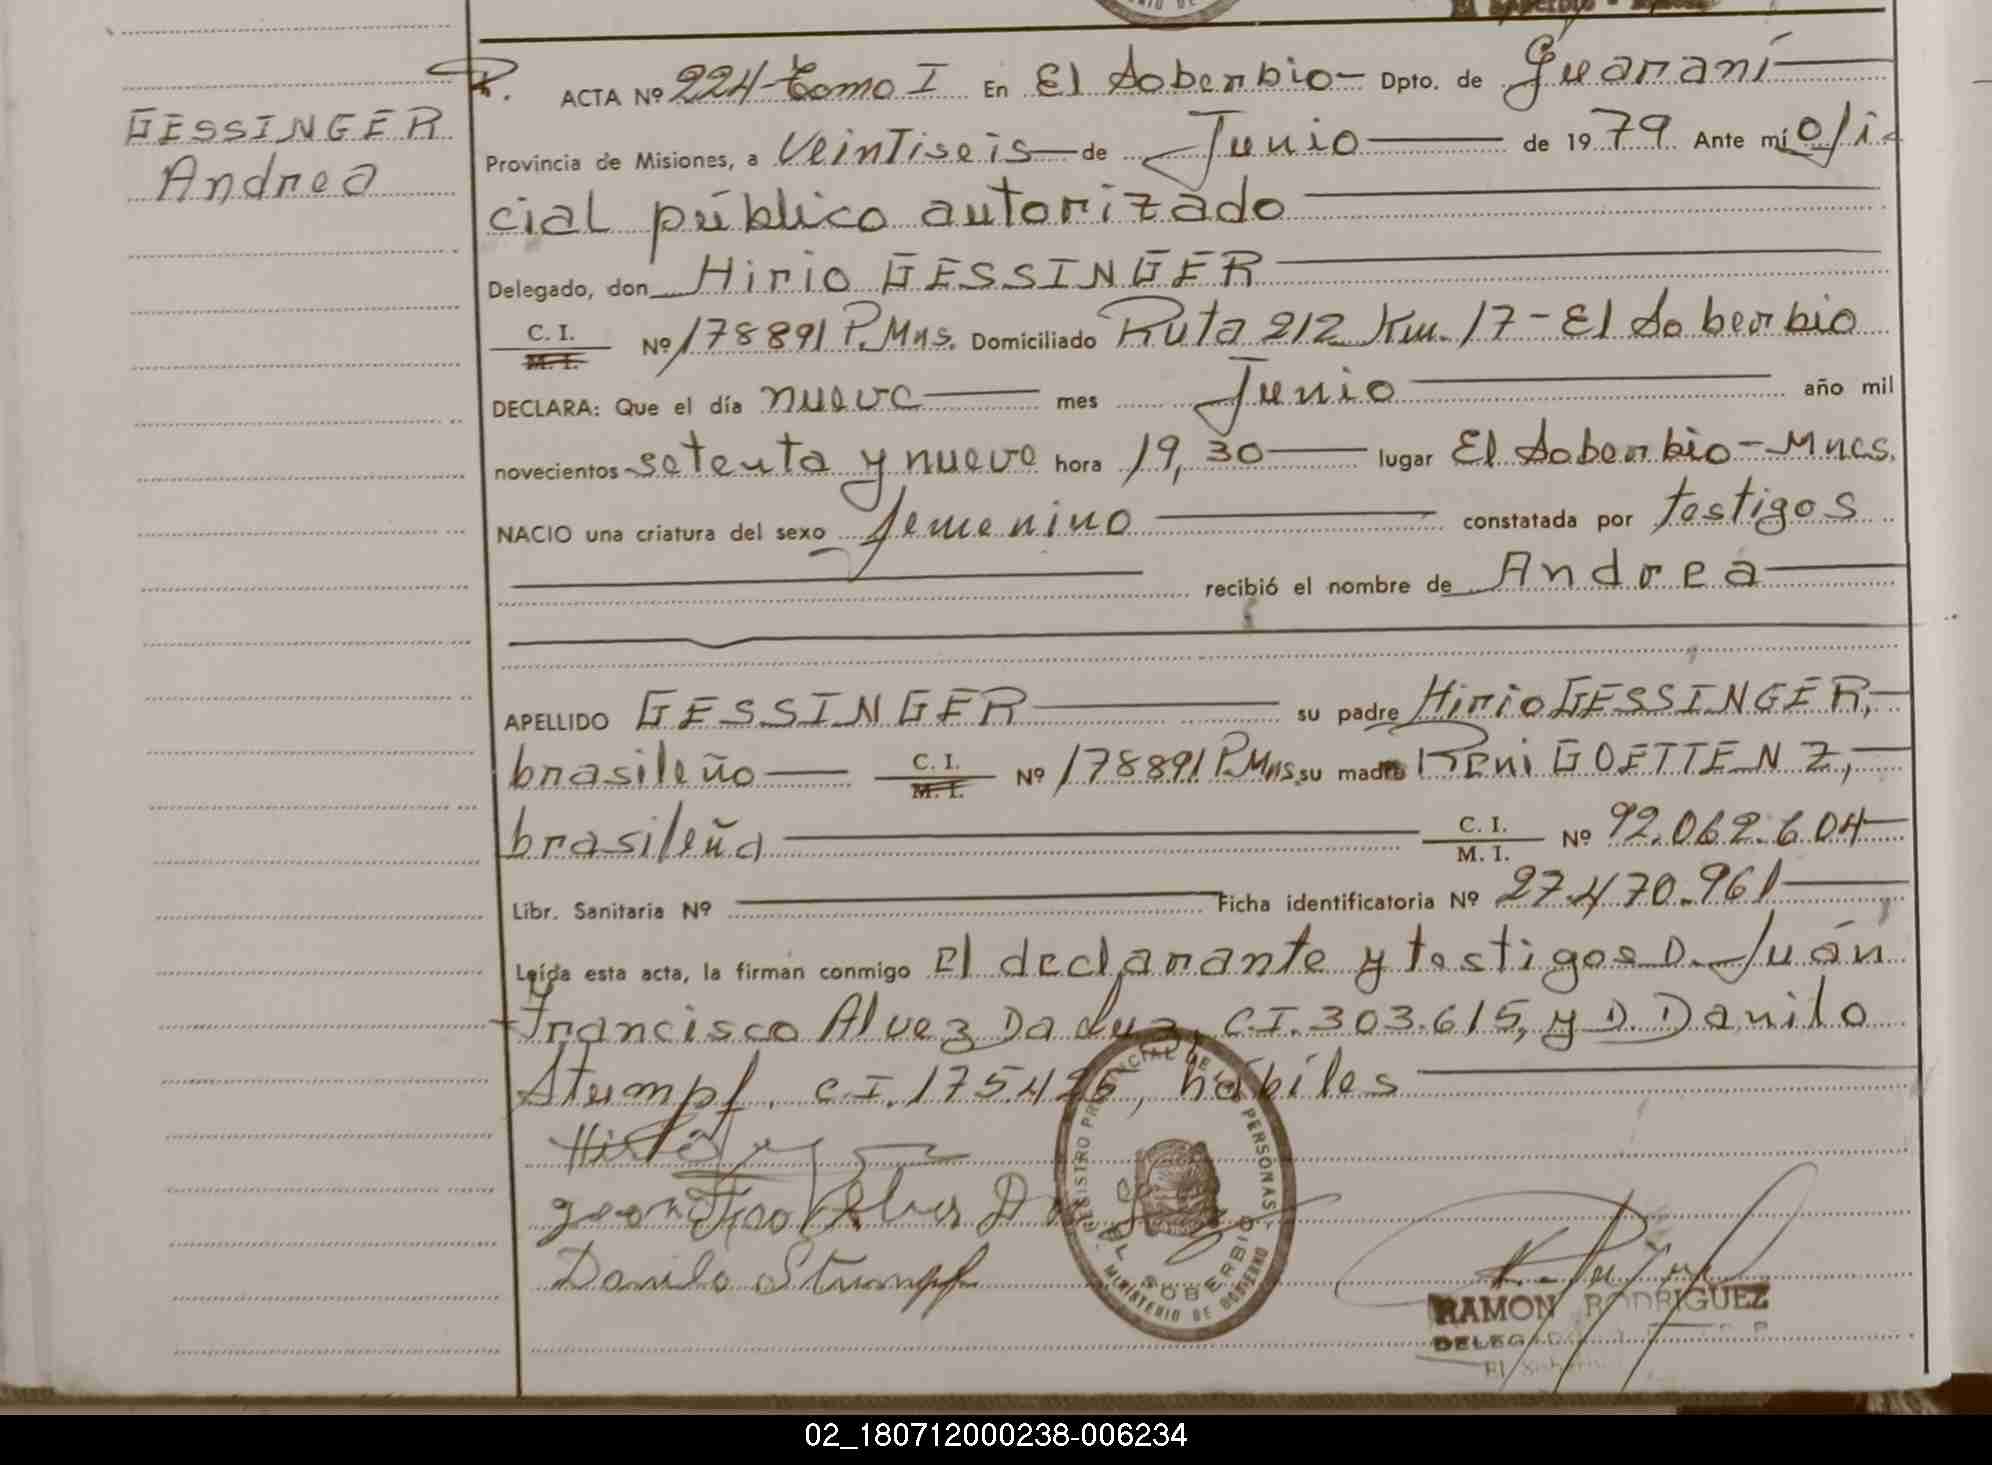 GESSINGER
Andrea
R. ACTA Nº 224-Tomo I En El Soberbio- Dpto. de Guaraní
Provincia de Misiones, a Veintiseis de Junio de 1979 Ante mí ofi-
cial público autorizado
Delegado, don Hirio GESSINGER
C. I. M. I. Nº 178891 P.Mns. Domiciliado Ruta 212 Km. 17-El Soberbio
DECLARA: Que el día nueve mes Junio año mil
novecientos setenta y nueve hora 19,30 lugar El Soberbio-Mnes.
NACIO una criatura del sexo femenino constatada por testigos
recibió el nombre de Andrea
APELLIDO GESSINGER su padre Hirio GESSINGER,
brasileño C. I. M. I. Nº 178891 P.Mns. su madre Reni GOETTENZ,
brasileña C. I. M. I. Nº 92.062.604
Libr. Sanitaria Nº Ficha identificatoria Nº 27.470.961
Leída esta acta, la firman conmigo El declarante y testigos D. Juán
Francisco Alvez Da Luz, C.I. 303.615, y D. Danilo
Stumpf. C.I. 175.426, hábiles
Danilo Stumpf
REGISTRO PROVINCIAL DE LAS PERSONAS
EL SOBERBIO
MINISTERIO DE GOBIERNO
RAMON RODRIGUEZ
02_180712000238-006234